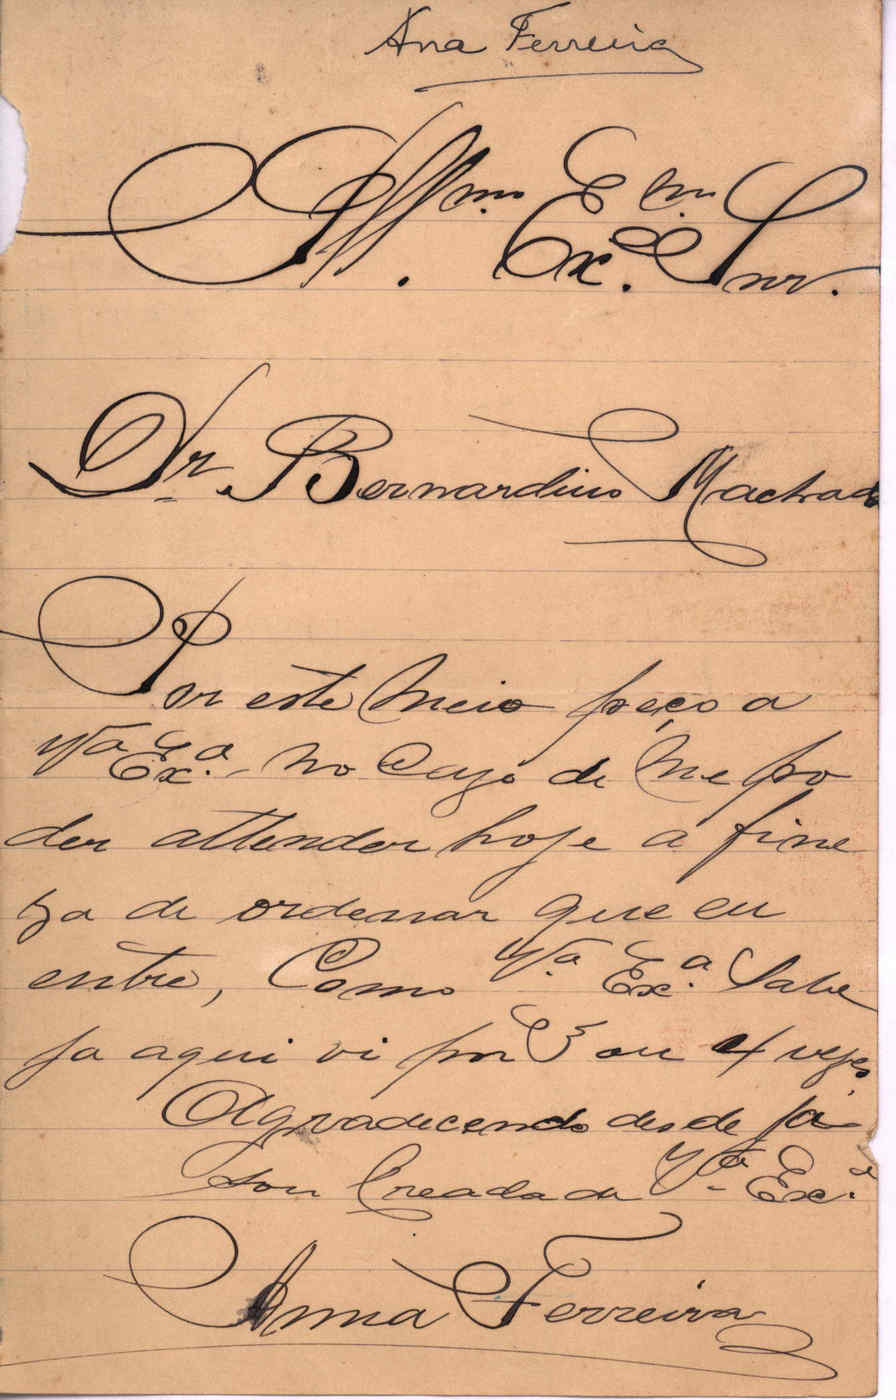 Ana Ferreira
Illmo. Exmo. Snr.
Dr. Bernardino Machado
Por este meio peço a
Va Exa. no Cazo de me po
der attender hoje a fine
za de ordenar que eu
entre, Como Va. Exa. Sabe
ja aqui vi por 3 ou 4 vezes
Agradecendo desde já
sou Creada de Va Exa.
Anna Ferreira